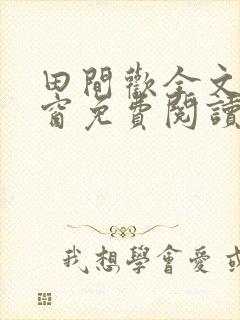 田間歡全文
窗免費閱讀
我想學會愛或